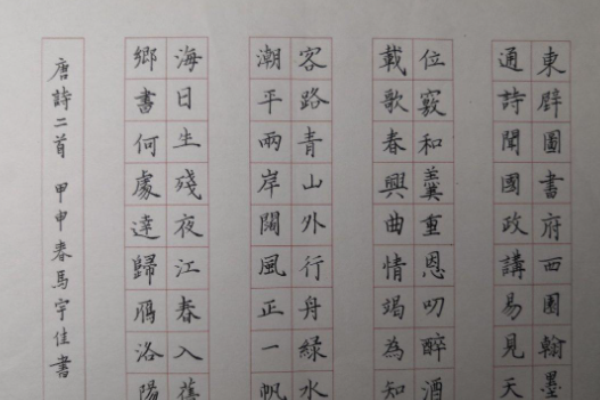 東辟圖書府西園翰墨
通詩聞國政講易見天
位竅和羹重恩叨醉酒
載歌春興曲情竭為知
客路青山外行舟綠水
潮平兩岸闊風正一帆
海日生殘夜江春入舊
鄉書何處達歸雁洛陽
唐詩二首 甲申春馬宇佳書